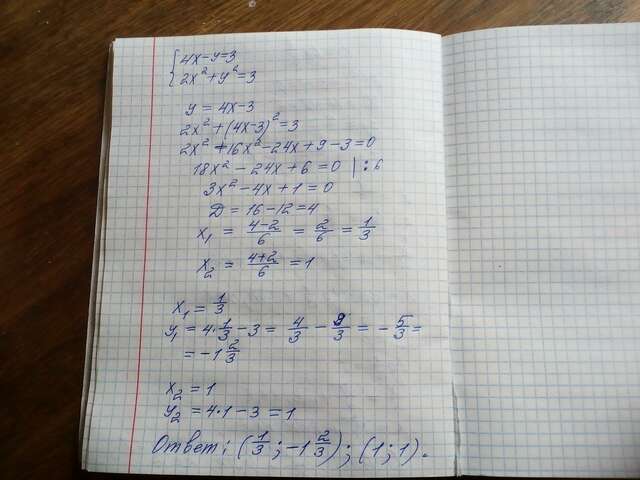 {4x-y=3
2x²+y²=3
y = 4x-3
2x²+(4x-3)²=3
2x²+16x²-24x+9-3=0
18x²-24x+6=0 |:6
3x²-4x+1=0
D=16-12=4
x₁ = (4-2)/6 = 2/6 = 1/3
x₂ = (4+2)/6 = 1
x₁ = 1/3
y₁ = 4·1/3 - 3 = 4/3 - 9/3 = -5/3 =
= -1 2/3
x₂ = 1
y₂ = 4·1-3 = 1
Ответ: (1/3; -1 2/3); (1; 1).